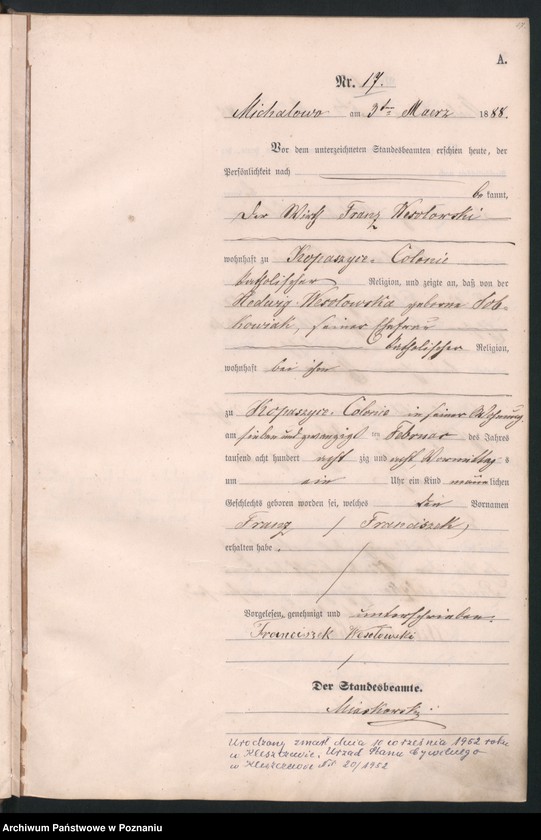 A.
Nr. 17.
Michalowo am 3ten Maerz 1888.
Vor dem unterzeichneten Standesbeamten erschien heute, der
Persönlichkeit nach
bekannt,
der Wirth Franz Wesolowski
wohnhaft zu Kopaszyce-Colonie
katholischer Religion, und zeigte an, daß von der
Hedwig Wesolowska geborne Sob-
kowiak, seiner Ehefrau
katholischer Religion,
wohnhaft bei ihm
zu Kopaszyce-Colonie in seiner Wohnung
am sieben und zwanzigst ten Februar des Jahres
tausend acht hundert acht zig und acht, Vormittag s
um ein Uhr ein Kind männlichen
Geschlechts geboren worden sei, welches den Vornamen
Franz / Franciszek,
erhalten habe.
Vorgelesen, genehmigt und unterschrieben.
Franciszek Wesołowski
Der Standesbeamte.
Urodzony zmarł dnia 10 września 1952 roku
w Kleszczewie. Urząd Stanu Cywilnego
w Kleszczewie Nr 20/1952
Archiwum Państwowe w Poznaniu